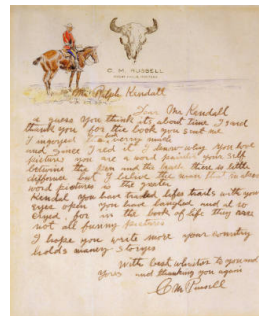 C. M. RUSSELL
Mr Ralph Kendall
Dear Mr Kendall
I guess you think its about time I and
thank you for the book you sent me
I injoyed it verry much
and since I red it I know why you love
pictures you are a word painter your self
betwine the pen and the brush there is little
diffornce but I belive the man that
word pictures is the greater
Kendal you have traveled lifes trails with your
eyes open you have laughed and al so
cryed for in the book of life they are
not all funny pictures
I hope you write more your country
holds maney storyes
With best whishes to you and
yours and thanking you again
C M Russell